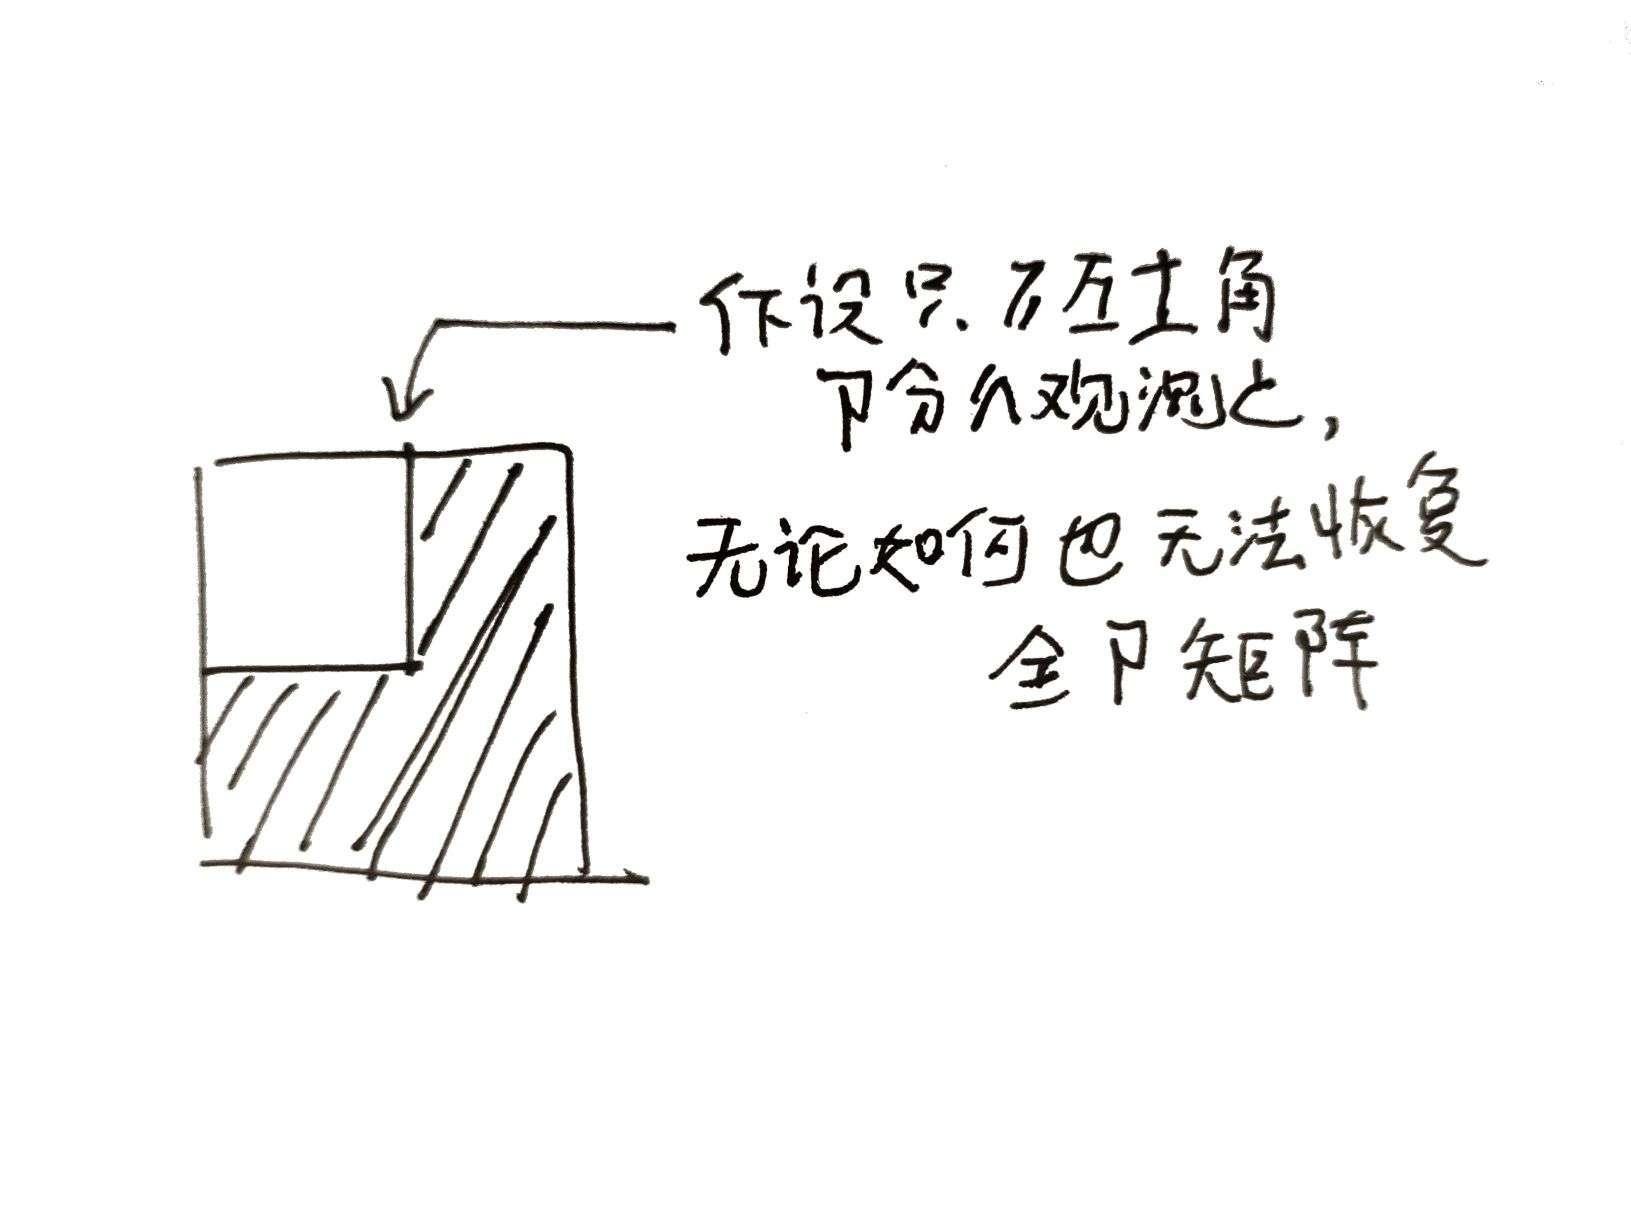 假设只有左上角
部分 观测之,
无论如何也无法恢复
全部矩阵